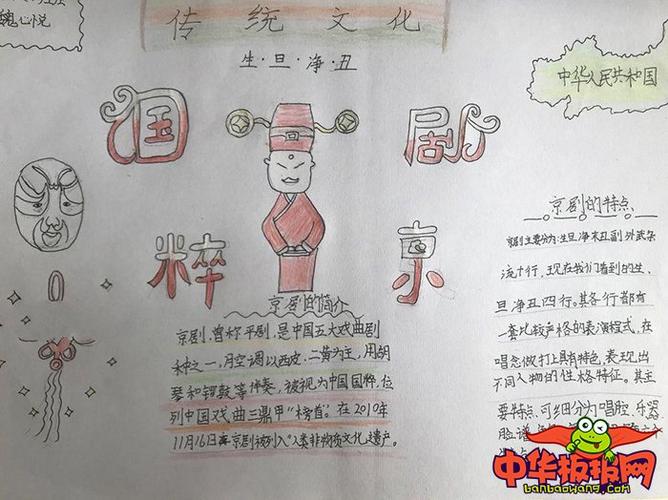 魏心悦
传统文化
生·旦·净·丑
国
剧
粹
京
中华人民共和国
京剧的简介
京剧,曾称平剧,是中国五大戏曲剧
种之一,月空调以西皮、二黄为主,用胡
琴和锣鼓等伴奏,被视为中国国粹,位
列中国戏曲三鼎甲"榜首"。在2010年
11月16日 京剧被列入"人类非物质文化遗产。
京剧的特点
京剧主要分为:生旦净末丑副外武杂
流十行,现在我们看到的生、
旦净丑四行。其各行都有
一套比较严格的表演程式,在
唱念做打上具有特色,表现出
不同人物的性格特征。其主
要特点,可细分为唱腔、乐器
脸谱
中华板报网
banbaowang.com